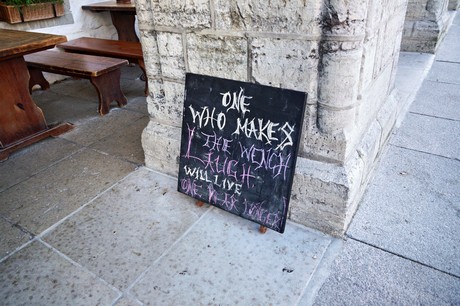 ONE
WHO MAKES
THE WENCH
LAUGH
WILL LIVE
ONE DAY LONGER